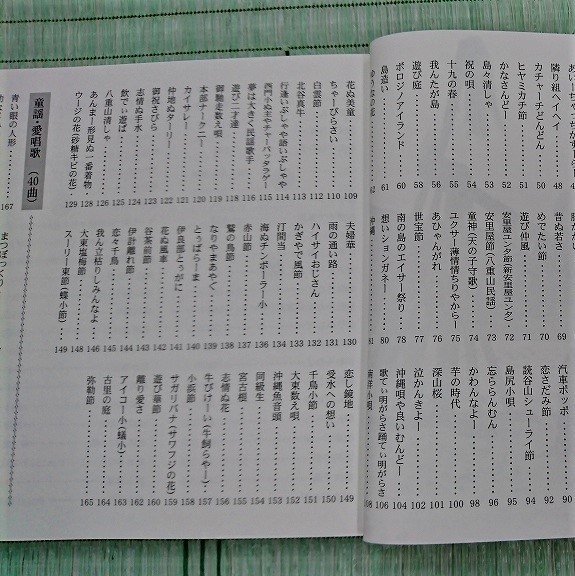 隣り組ヘイヘイ 48
カチャーチどんどん 50
ヒヤミカチ節 51
かなさんどー 52
島々清しゃ 53
祝の唄 54
十九の春 55
我んたが島 56
遊び庭 58
ボロジノアイランド 60
島造い 61
昔ぬ若さ
めでたい節 70
遊び仲風 71
安里屋ユンタ節(新安里屋ユンタ) 72
安里屋節(八重山民謡) 73
童神(天の子守歌) 74
ユクサー薄情情ちりやからー 75
あひゃんがれ 76
世宝節 77
南の島のエイサー祭り 78
想いションガネー 80
沖縄
汽車ポッポ 90
恋さだみ節 92
読谷山シューライ節 94
島尻小唄 95
忘ららんむん 96
かわんなよー 98
芋の時代 100
深山桜 101
泣かんきよー 102
沖縄唄や良いむんどー 104
歌てぃ明がらさ踊てぃ明がらさ 106
花ぬ美童 109
ちゃーびらさい 110
白雲節 111
北谷真牛 112
行逢いぶしゃや語いぶしゃや 114
西門小ぬ主やチャーバッタラゲー 115
夢は大きく民謡歌手 116
遊び二才達 118
御馳走数え唄 119
本部ナークニー 120
カイサレー 121
仲地ぬターリー 122
御祝さびら 123
志情ぬ手水 124
飲でぃ遊ば 125
八重山清しゃ 126
あんまー形見ぬ一番着物 128
ウージの花(砂糖キビの花) 129
童謡・愛唱歌 (40曲)
青い眼の人形 167
夫婦華 130
雨の通い路 131
ハイサイおじさん 132
かぎやで風節 133
汀間当 134
海ぬチンボーラー小 136
赤山節 137
鷲の鳥節 138
なりやまあやぐ 139
とぅばらーま 140
伊良部とぅがに 141
花ぬ風車 142
谷茶前節 143
伊計離れ節 144
恋々千鳥 145
我ん立粘りしみんなよ 146
大東塩梅節 148
スーリー東節(蝶小節) 149
まつぼっくり
恋し鏡地 149
受水への想い 150
千鳥小節 151
大東数え唄 152
沖縄魚音頭 153
同級生 154
宮古根 155
志情ぬ花 156
牛びけーい(牛飼らやー) 157
小浜節 158
サガリバナ(サワフジの花) 159
遊び華節 160
離り愛さ 162
アイコー小(蟻小) 163
古里の庭 164
弥勒節 165